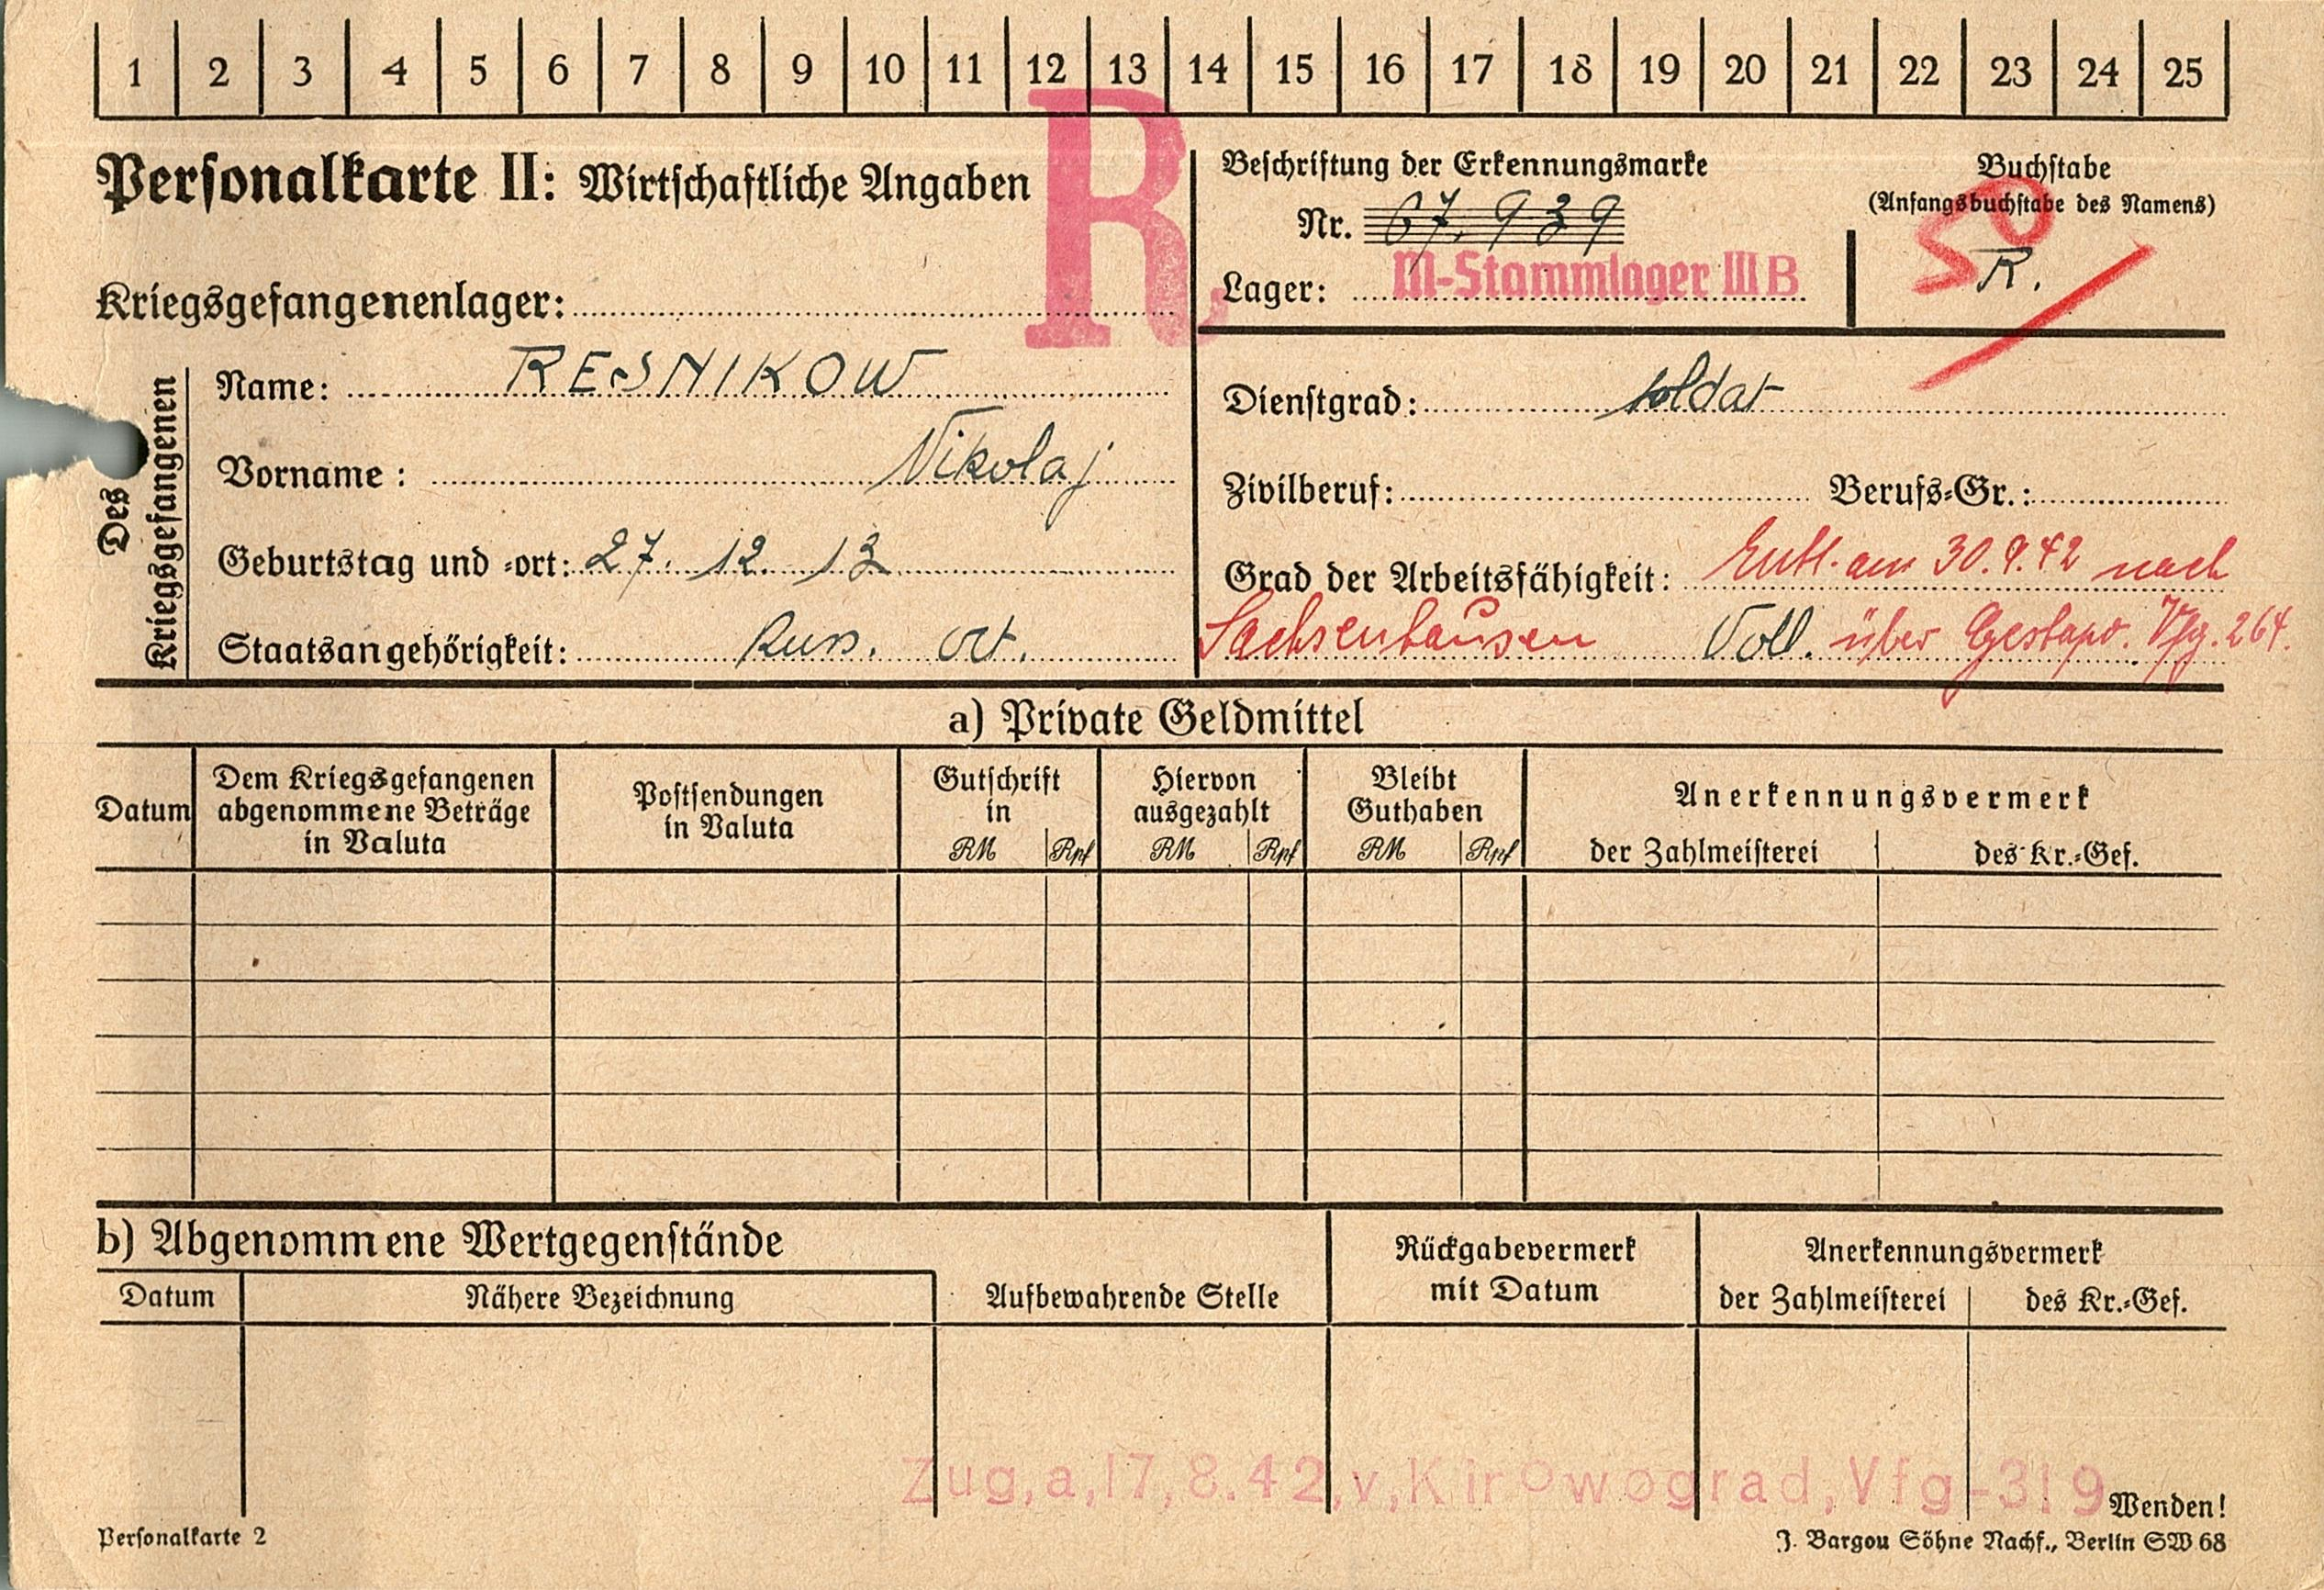 1 2 3 4 5 6 7 8 9 10 11 12 13 14 15 16 17 18 19 20 21 22 23 24 25
Personalkarte II: Wirtschaftliche Angaben
R
Beschriftung der Erkennungsmarke
Nr. 67.939
Lager: M-Stammlager III B
Buchstabe
(Anfangsbuchstabe des Namens)
50
R.
Kriegsgefangenenlager:
Des Kriegsgefangenen
Name: RESNIKOW
Vorname: Nikolaj
Geburtstag und -ort: 27. 12. 13
Staatsangehörigkeit: Russ. ort.
Dienstgrad: soldat
Zivilberuf: Berufs-Gr.:
Grad der Arbeitsfähigkeit: Entl. am 30.9.42 nach
Sachsenhausen Voll. über Gestapo. Vfg. 264.
a) Private Geldmittel
Datum
Dem Kriegsgefangenen
abgenommene Beträge
in Valuta
Postsendungen
in Valuta
Gutschrift
in
RM Rpf
Hiervon
ausgezahlt
RM Rpf
Bleibt
Guthaben
RM Rpf
Anerkennungsvermerk
der Zahlmeisterei des Kr.-Gef.
b) Abgenommene Wertgegenstände
Datum Nähere Bezeichnung
Aufbewahrende Stelle
Rückgabevermerk
mit Datum
Anerkennungsvermerk
der Zahlmeisterei des Kr.-Gef.
Zug,a,17,8.42,v,Kirowograd,Vfg-319
Wenden!
Personalkarte 2
J. Bargou Söhne Nachf., Berlin SW 68